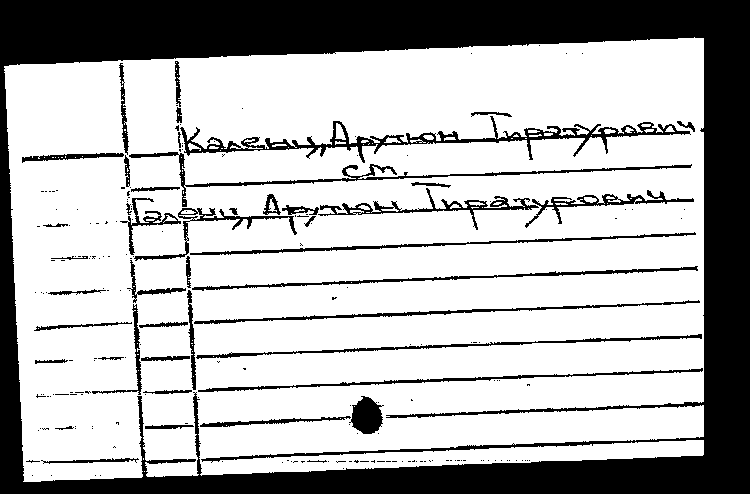 Каленц, Арутюн Тиратурович.
ст.
Галенц, Арутюн Тиратурович